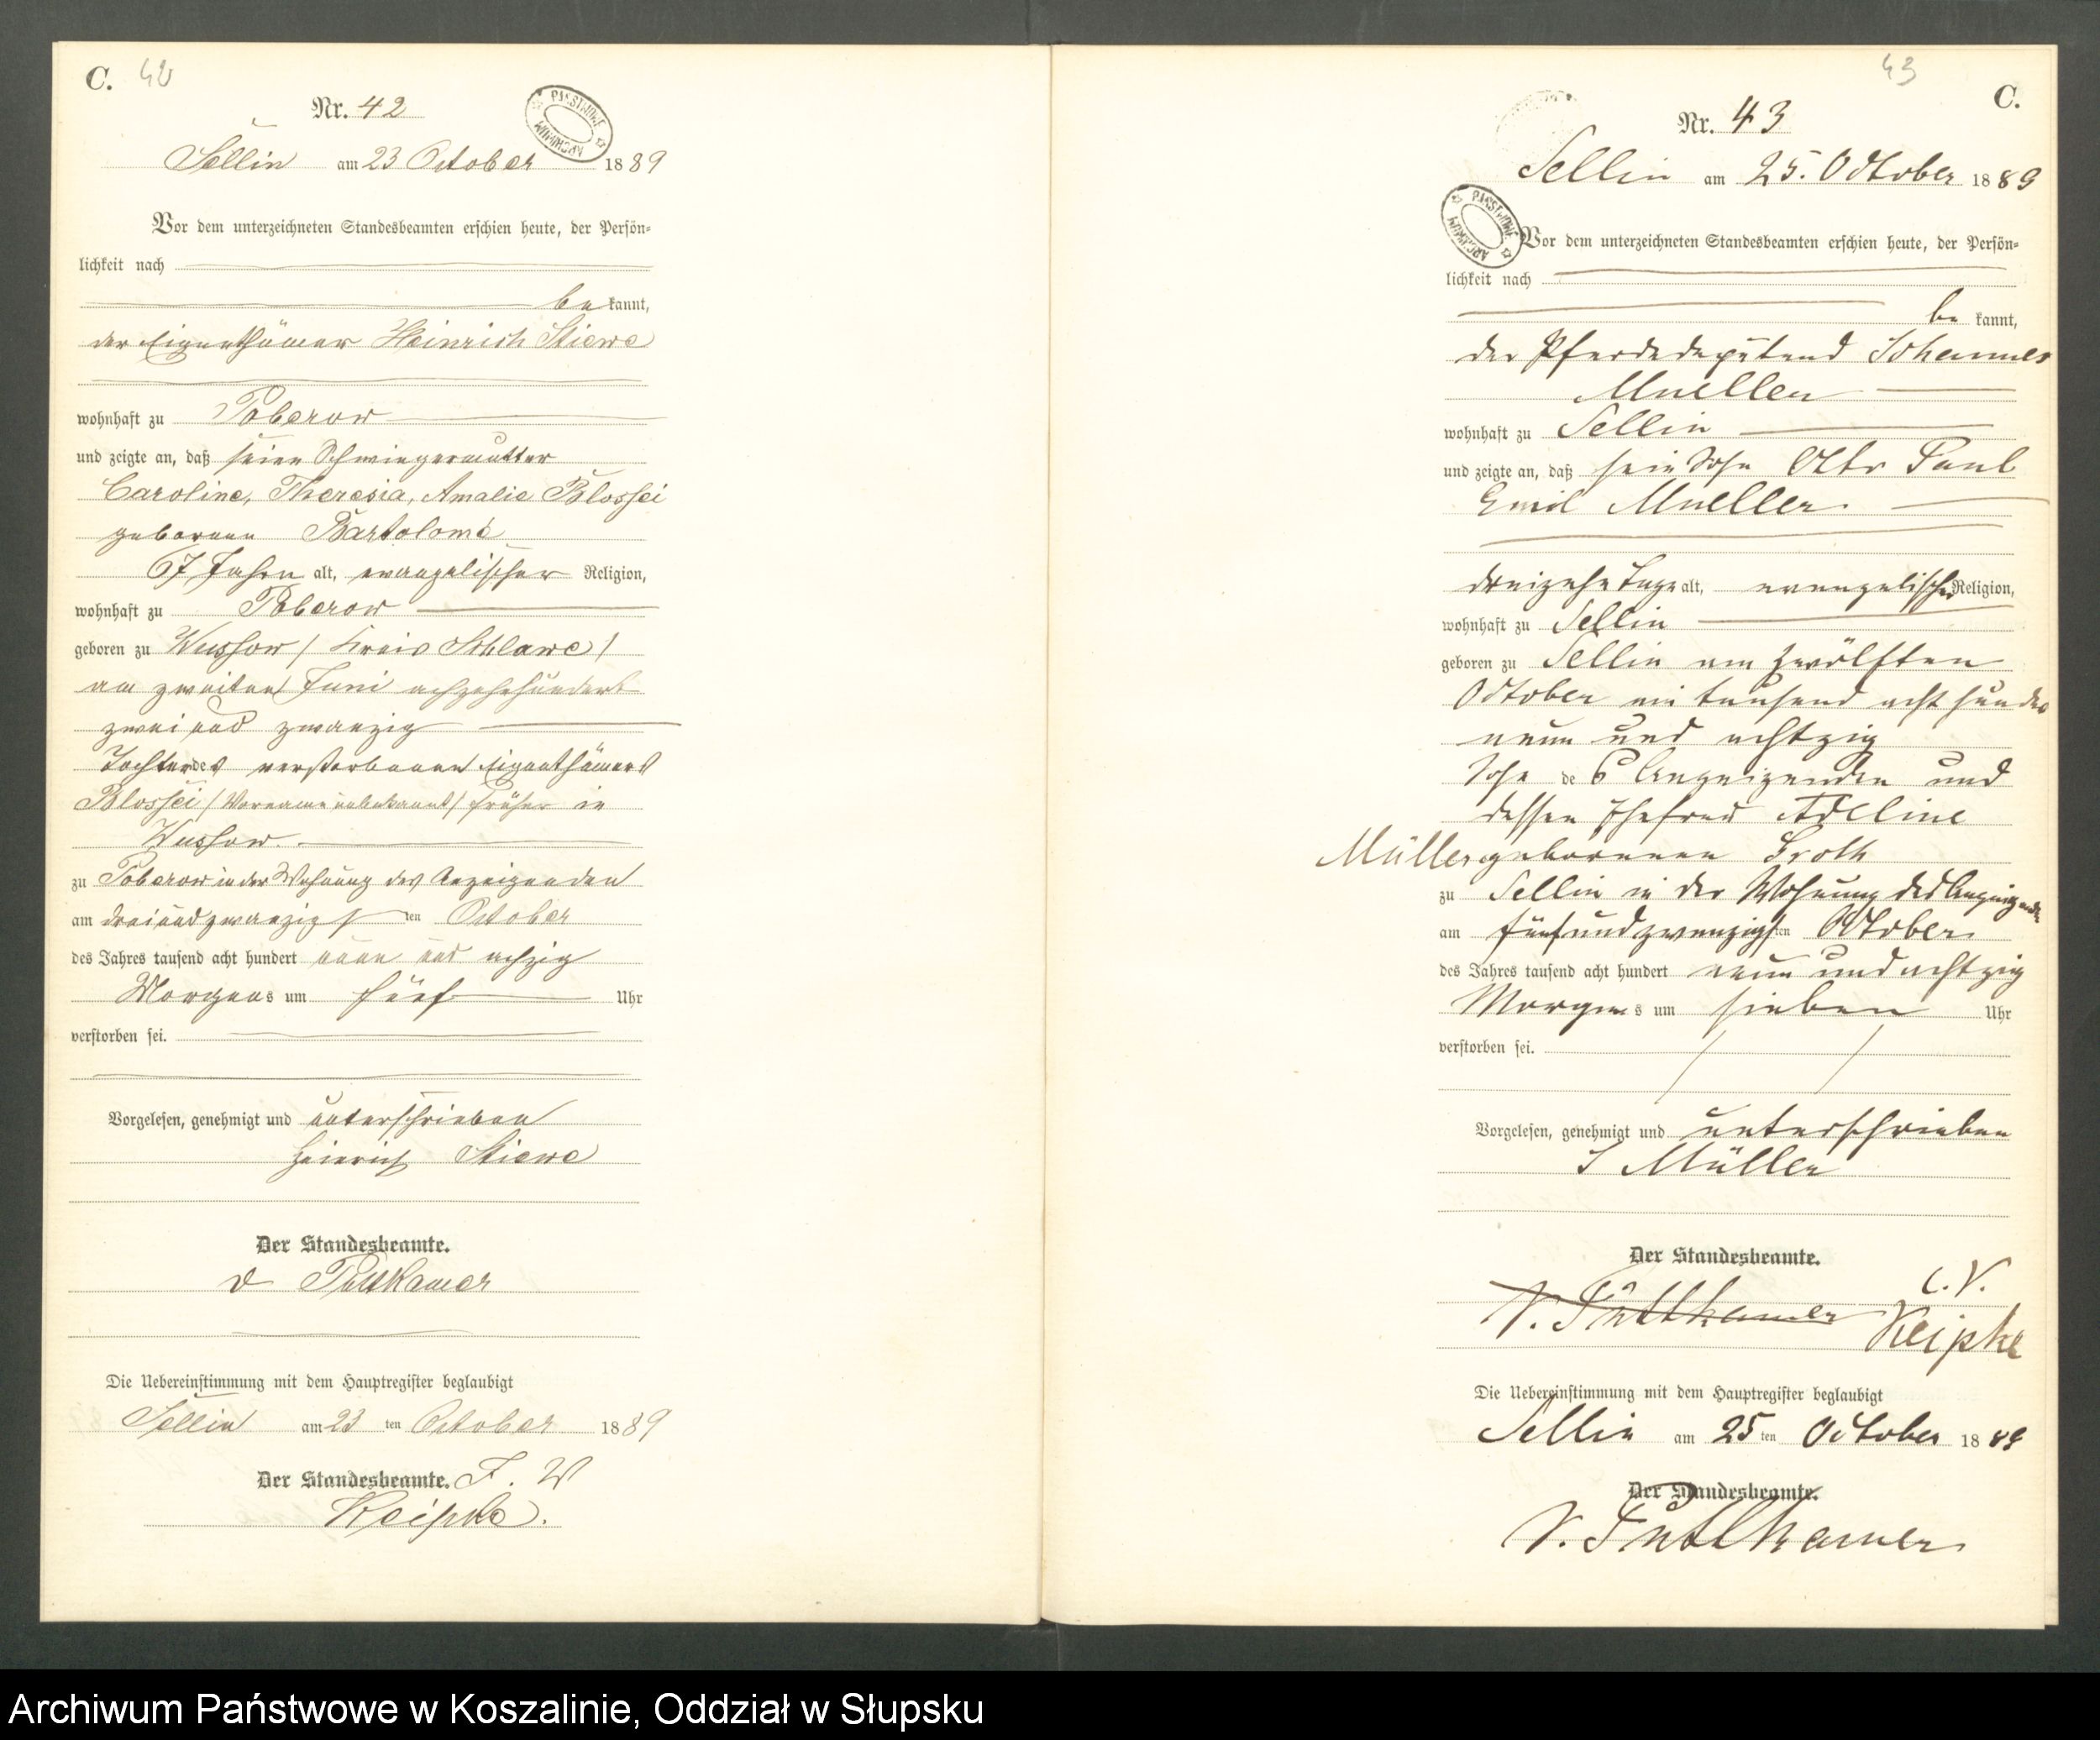 C. 42
Nr. 42
PAŃSTWOWE ARCHIWUM
Sellin am 23 October 1889
Vor dem unterzeichneten Standesbeamten erschien heute, der Persön-
lichkeit nach
bekannt,
der Eigenthümer Heinrich Stiewe
wohnhaft zu Poberow
und zeigte an, daß seine Schwiegermutter
Caroline, Theresia, Amalie Blossei
geborene Bartolomé
67 Jahre alt, evangelischer Religion,
wohnhaft zu Poberow
geboren zu Wussow / Kreis Schlawe /
am zweiten Juni achzehnhundert
zwei und zwanzig
Tochter des verstorbenen Eigenthümers
Blossei / Vorname unbekannt / früher in
Wussow.
zu Poberow in der Wohnung des Anzeigenden
am drei und zwanzigsten October
des Jahres tausend acht hundert neun und achzig
Morgens um fünf Uhr
verstorben sei.
Vorgelesen, genehmigt und unterschrieben
Heinrich Stiewe
Der Standesbeamte.
v Puttkamer
Die Uebereinstimmung mit dem Hauptregister beglaubigt
Sellin am 23 ten October 1889
Der Standesbeamte. I. V
Keipke.
43
C.
Nr. 43
Sellin am 25. October 1889
PAŃSTWOWE ARCHIWUM
Vor dem unterzeichneten Standesbeamten erschien heute, der Persön-
lichkeit nach
bekannt,
der Pferdedeputand Johannes
Mueller
wohnhaft zu Sellin
und zeigte an, daß sein Sohn Otto Paul
Emil Mueller
dreizehn Tage alt, evangelischer Religion,
wohnhaft zu Sellin
geboren zu Sellin am zwölften
October ein tausend acht hundert
neun und achtzig
Sohn des Anzeigenden und
dessen Ehefrau Adeline
Müller geborenen Groth
zu Sellin in der Wohnung des Anzeigenden
am fünf und zwanzigsten October
des Jahres tausend acht hundert neun und achtzig
Morgens um sieben Uhr
verstorben sei.
Vorgelesen, genehmigt und unterschrieben
J Müller
Der Standesbeamte.
i. V.
v. Puttkamer Keipke
Die Uebereinstimmung mit dem Hauptregister beglaubigt
Sellin am 25 ten October 1889
Der Standesbeamte.
v. Puttkamer
Archiwum Państwowe w Koszalinie, Oddział w Słupsku